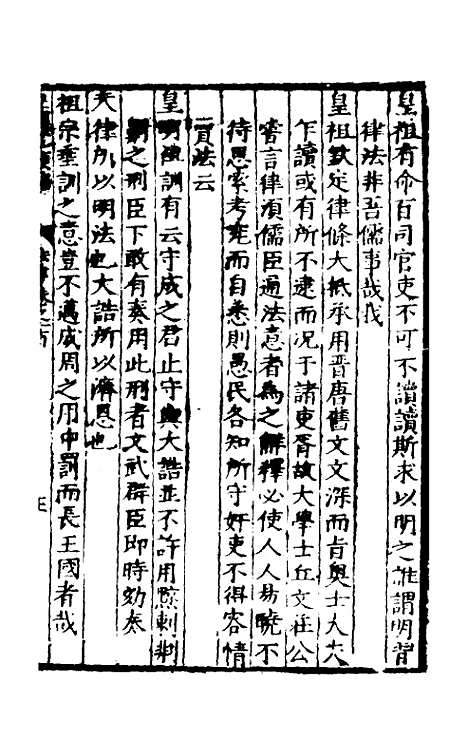 皇祖有命百司官吏不可不讀讀斯求以明之誰謂明習
律法非吾儒事哉我
皇祖欽定律條大抵承用晉唐舊文文深而旨奧士大夫
乍讀或有所不逮而況于諸吏胥故大學士丘文莊公
嘗言律須儒臣通法意者為之解釋必使人人易曉不
待思索考究而自悉則愚民各知所守奸吏不得容情
賣法云
皇明祖訓有云守成之君止守與大誥並不許用黥刺剕
劓之刑臣下敢有奏用此刑者文武群臣即時劾奏
夫律所以明法也大誥所以濟恩也
祖宗垂訓之意豈不邁成周之用中罰而長王國者哉